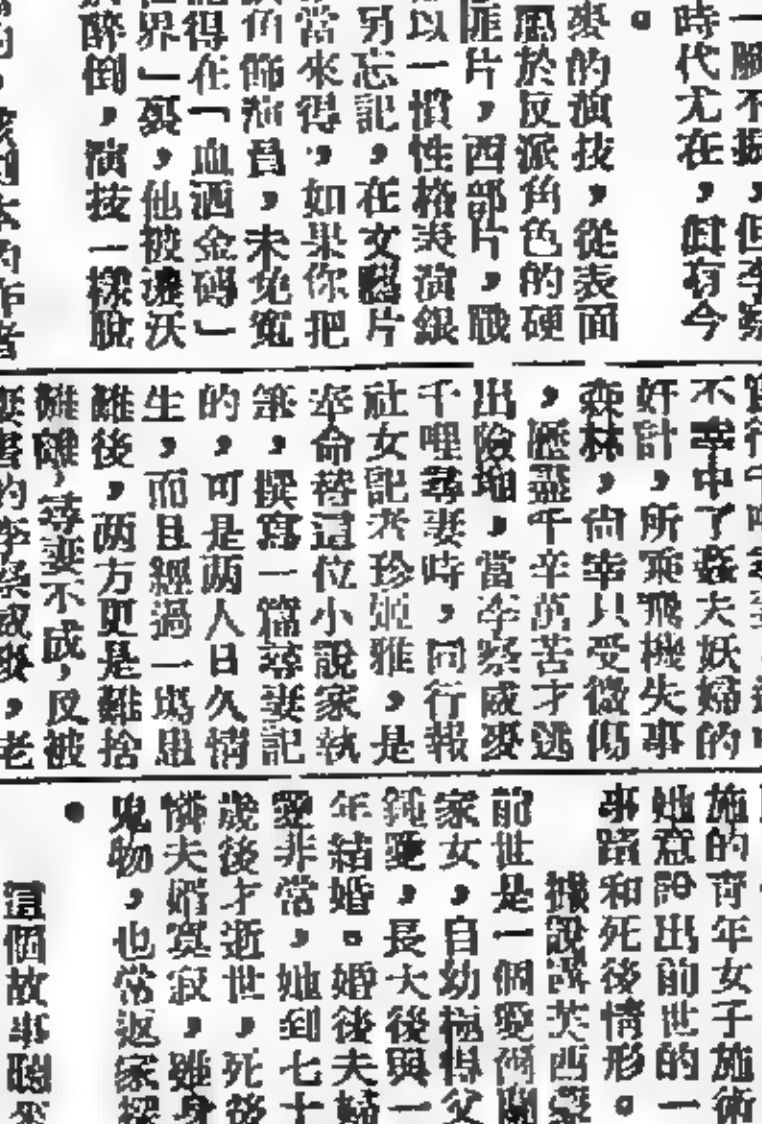 一臟不振，但李察
時代尤在，但有今
。
麥的演技，從表面
風於反派角色的硬
匪片，西部片，戰
以一慣性格表演銀
另忘記，在文藝片
當來得，如果你把
角飾演員，未免冤
得在「血洒金磚」
界」裏，他被
醉倒，演技一樣脫
不幸中了姦夫妖婦的
奸計，所乘飛機失事
森林，尚幸只受微傷
，歷盡千辛萬苦才逃
出險地，當李察威麥
千哩尋妻時，同行報
社女記者珍姬雅，是
奉命替這位小說家執
筆，撰寫一篇尋妻記
的，可是两人日久情
生，而且經過一塲患
難後，两方更是難捨
難離，尋妻不成，反被
的李察威麥，老
施的青年女子施術
她意說出前世的一
事蹟和死後情形。
據說議芙西亞
前世是一個愛爾蘭
家女，自幼極得父
鍾愛，長大後與一
年結婚。婚後夫婦
愛非常，她到七十
歲後才逝世，死後
憐夫婿寞寂，雖身
鬼物，也常返家探
。
這個故事聽來